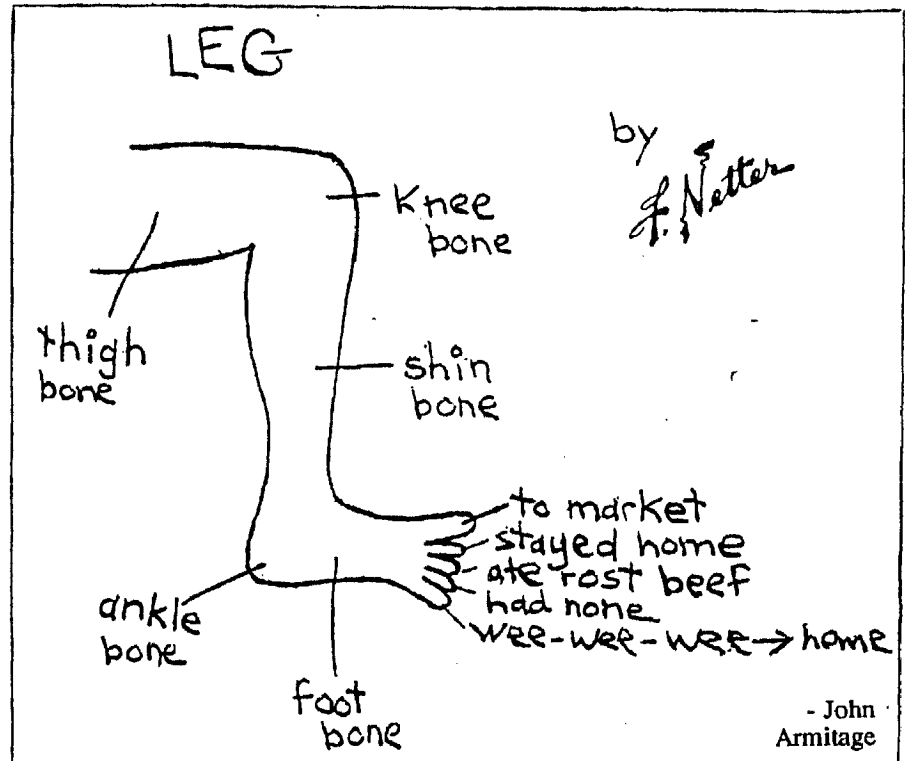 LEG
by
F. Netter
Knee
bone
thigh
bone
shin
bone
to market
stayed home
ate rost beef
had none
wee-wee-wee→home
ankle
bone
foot
bone
- John
Armitage